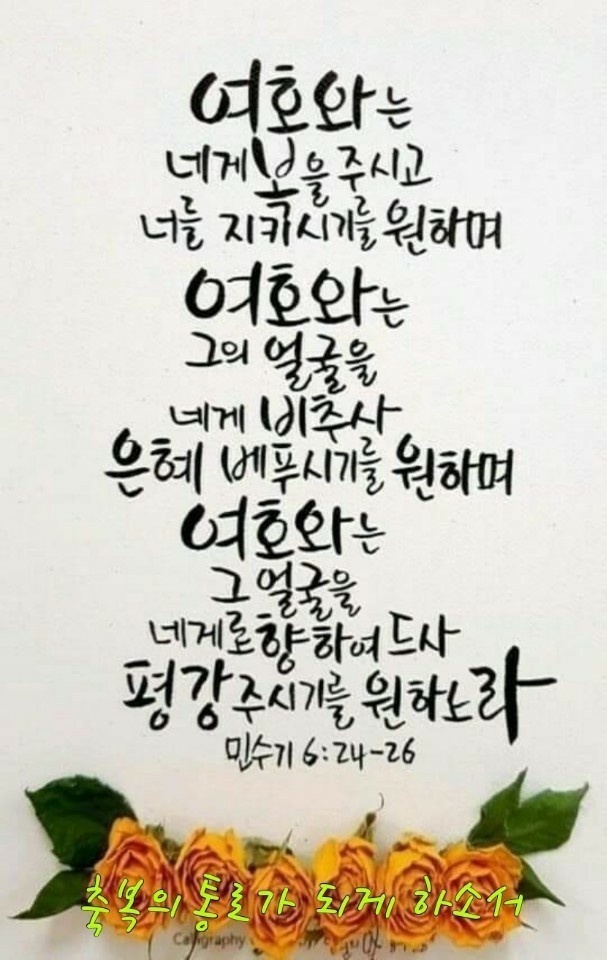 여호와는
네게 복을 주시고
너를 지키시기를 원하며
여호와는
그의 얼굴을
네게 비추사
은혜 베푸시기를 원하며
여호와는
그 얼굴을
네게로 향하여 드사
평강 주시기를 원하노라
민수기 6:24-26
축복의 통로가 되게 하소서
Calligraphy